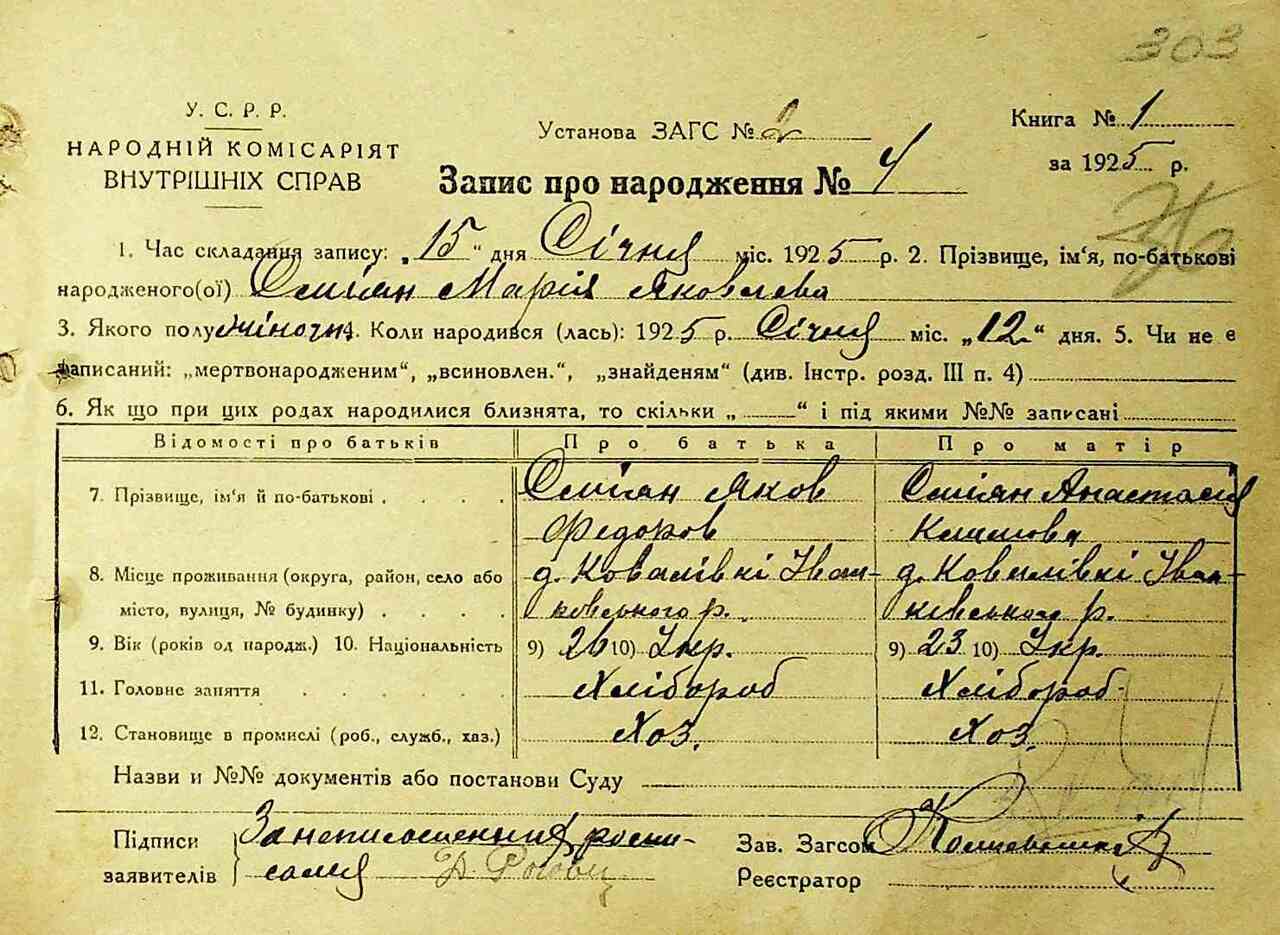 303
У. С. Р. Р.
НАРОДНІЙ КОМІСАРІЯТ
ВНУТРІШНІХ СПРАВ
Установа ЗАГС № 2
Книга № 1
за 1925 р.
Запис про народження № 4
1. Час складання запису: „15“ дня Січня міс. 1925 р. 2. Прізвище, ім'я, по-батькові
народженого(ої) Оміян Марія Яковлева
3. Якого полу жіноч. 4. Коли народився (лась): 1925 р. Січня міс. „12“ дня. 5. Чи не є
записаний: „мертвонародженим“, „всиновлен.“, „знайденям“ (див. Інстр. розд. III п. 4)
6. Як що при цих родах народилися близнята, то скільки „ “ і під якими №№ записані
Відомості про батьків Про батька Про матір
7. Прізвище, ім'я й по-батькові . . . . Оміян Яков Оміян Анастасія
Федоров Климова
8. Місце проживання (округа, район, село або д. Ковалівкі Іван- д. Ковалівкі Іван-
місто, вулиця, № будинку) . . . . ковського р. ківського р.
9. Вік (років од народж.) 10. Національність 9) 26 10) Укр. 9) 23 10) Укр.
11. Головне заняття . . . . . Хлібороб Хлібороб
12. Становище в промислі (роб., служб., хаз.) Хоз. Хоз.
Назви и №№ документів або постанови Суду
Підписи За неписьменних роспи-
заявителів сался
Зав. Загсом
Реєстратор